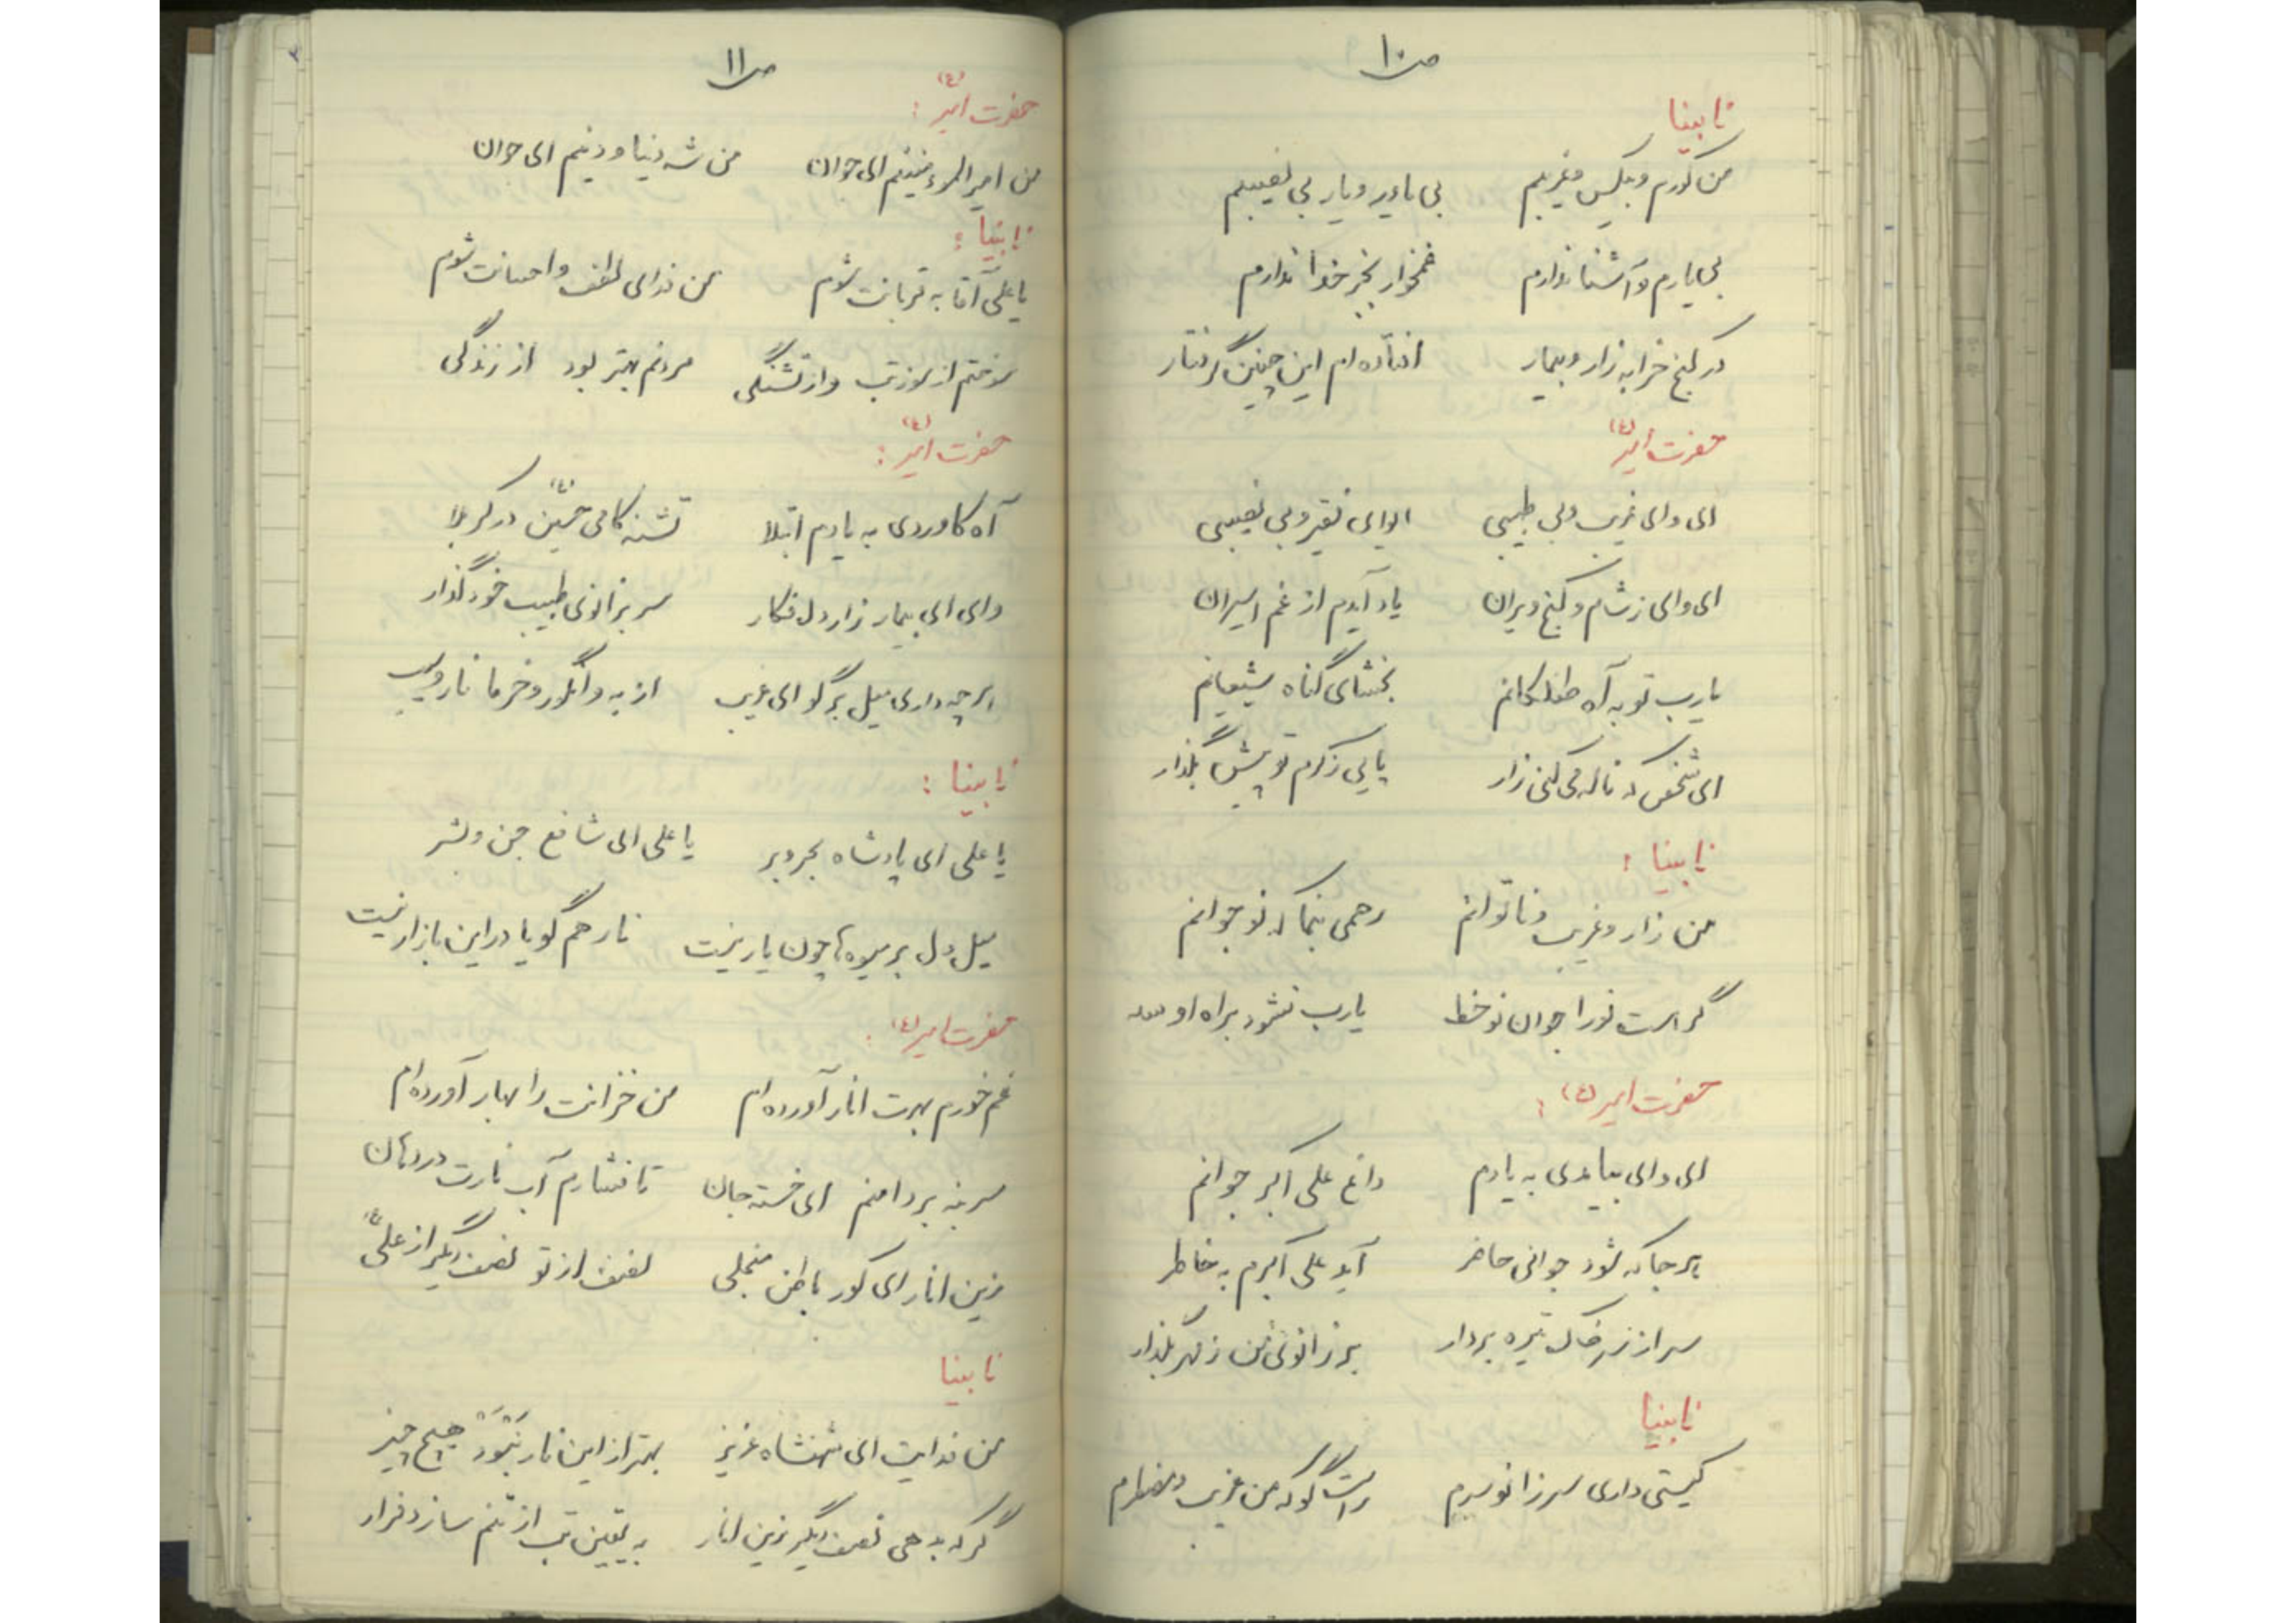 ص ۱۰
نابینا
من کورم و بیکس و غریبم بی یاور و یار بی نصیبم
بی یارم و آشنا ندارم غمخوار بجز خدا ندارم
در کنج خرابه زار و بیمار افتاده ام این چنین گرفتار
حضرت امیر (ع)
ای وای غریب و بی طبیبی ایوای فقیر و بی نصیبی
ای وای ز شام و کنج ویران یاد آیدم از غم اسیران
یارب تو به آه طفلکانم بخشای گناه شیعیانم
ای شخص که ناله می کنی زار پایی ز کرم تو پیش بگذار
نابینا :
من زار و غریب و ناتوانم رحمی بنما که نوجوانم
گر است تو را جوان نو خط یارب نشود براه او
حضرت امیر (ع) :
ای وای بیامدی به یادم داغ علی اکبر جوانم
هر جا که شود جوانی حاضر آید علی اکبرم به خاطر
سر از زبر خاک تیره بردار بر زانوی من ز مهر بگذار
نابینا
کیستی داری سر زانو سرم راست گو که من غریب و مضطرم
ص ۱۱
حضرت امیر (ع) :
من امیرالمؤمنینم ای جوان من شه دنیا و دینم ای جوان
نابینا :
یا علی آقا به قربانت شوم من فدای لطف و احسانت شوم
سوختم از سوز تب و از تشنگی مردنم بهتر بود از زندگی
حضرت امیر (ع) :
آه کاوردی به یادم ابتلا تشنه کامی حسین (ع) در کربلا
وای ای بیمار زار دل فکار سر بزانوی طبیب خود گذار
هر چه داری میل برگو ای غریب از به و انگور و خرما نار و سیب
نابینا :
یا علی ای پادشاه بحر و بر یا علی ای شافع جن و بشر
میل دل بر میوه ها چون یار نیست نار هم گویا در این بازار نیست
حضرت امیر (ع) :
غم خورم بهرت انار آورده ام من خزانت را بهار آورده ام
سر بنه بر دامنم ای خسته جان تا فشارم آب نارت در دهان
زین انار ای کور باطن منجلی نصف از تو نصف دیگر از علی (ع)
نابینا
من فدایت ای شهنشاه عزیز بهتر از این نار نَبْوَد هیچ چیز
گر که بدهی نصف دیگر زین انار به یقین تب از تنم سازد فرار